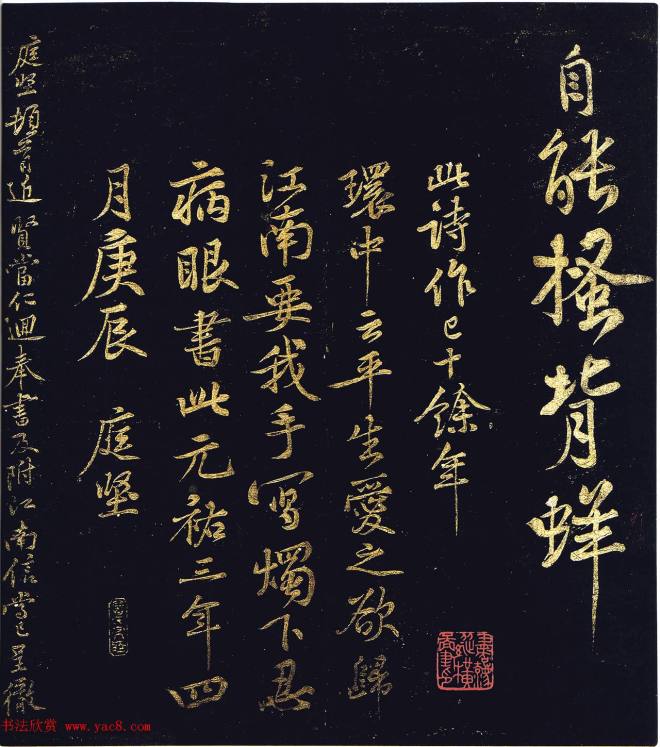 自能搔背蛘
此詩作已十餘年
環中云平生愛之欲歸
江南要我手寫燭下忍
病眼書此元祐三年四
月庚辰 庭堅
庭堅頓首連賢當仁迴奉書及附江南信當已呈徹
书法欣赏 www.yac8.com